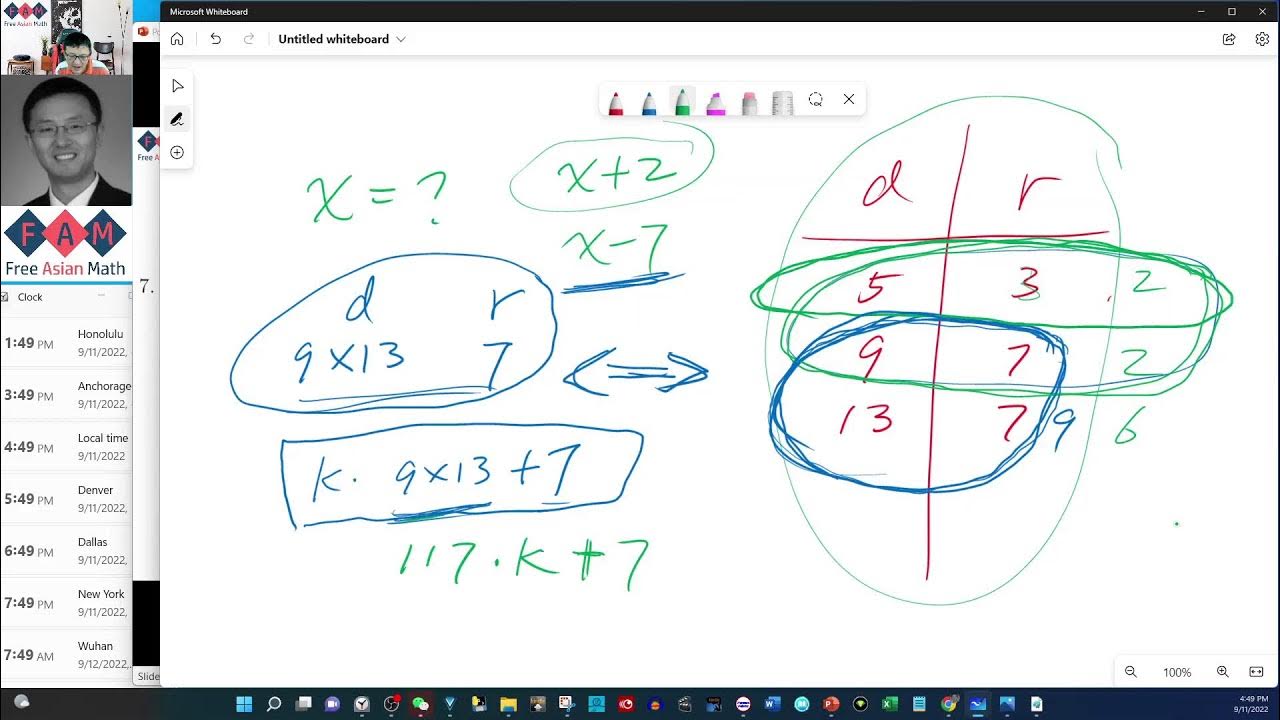 FAM
Free Asian Math
Microsoft Whiteboard
Untitled whiteboard
FAM
Free Asian Math
Clock
1:49 PM Honolulu
9/11/2022,
3:49 PM Anchorage
9/11/2022,
4:49 PM Local time
9/11/2022
5:49 PM Denver
9/11/2022,
6:49 PM Dallas
9/11/2022,
7:49 PM New York
9/11/2022,
7:49 AM Wuhan
9/12/2022,
7.
Slide
x = ?
x+2
x-7
d r
9x13 7
k. 9x13 + 7
117.k+7
d r
5 3 2
9 7 2
13 7 9 6
100%
4:49 PM
9/11/2022